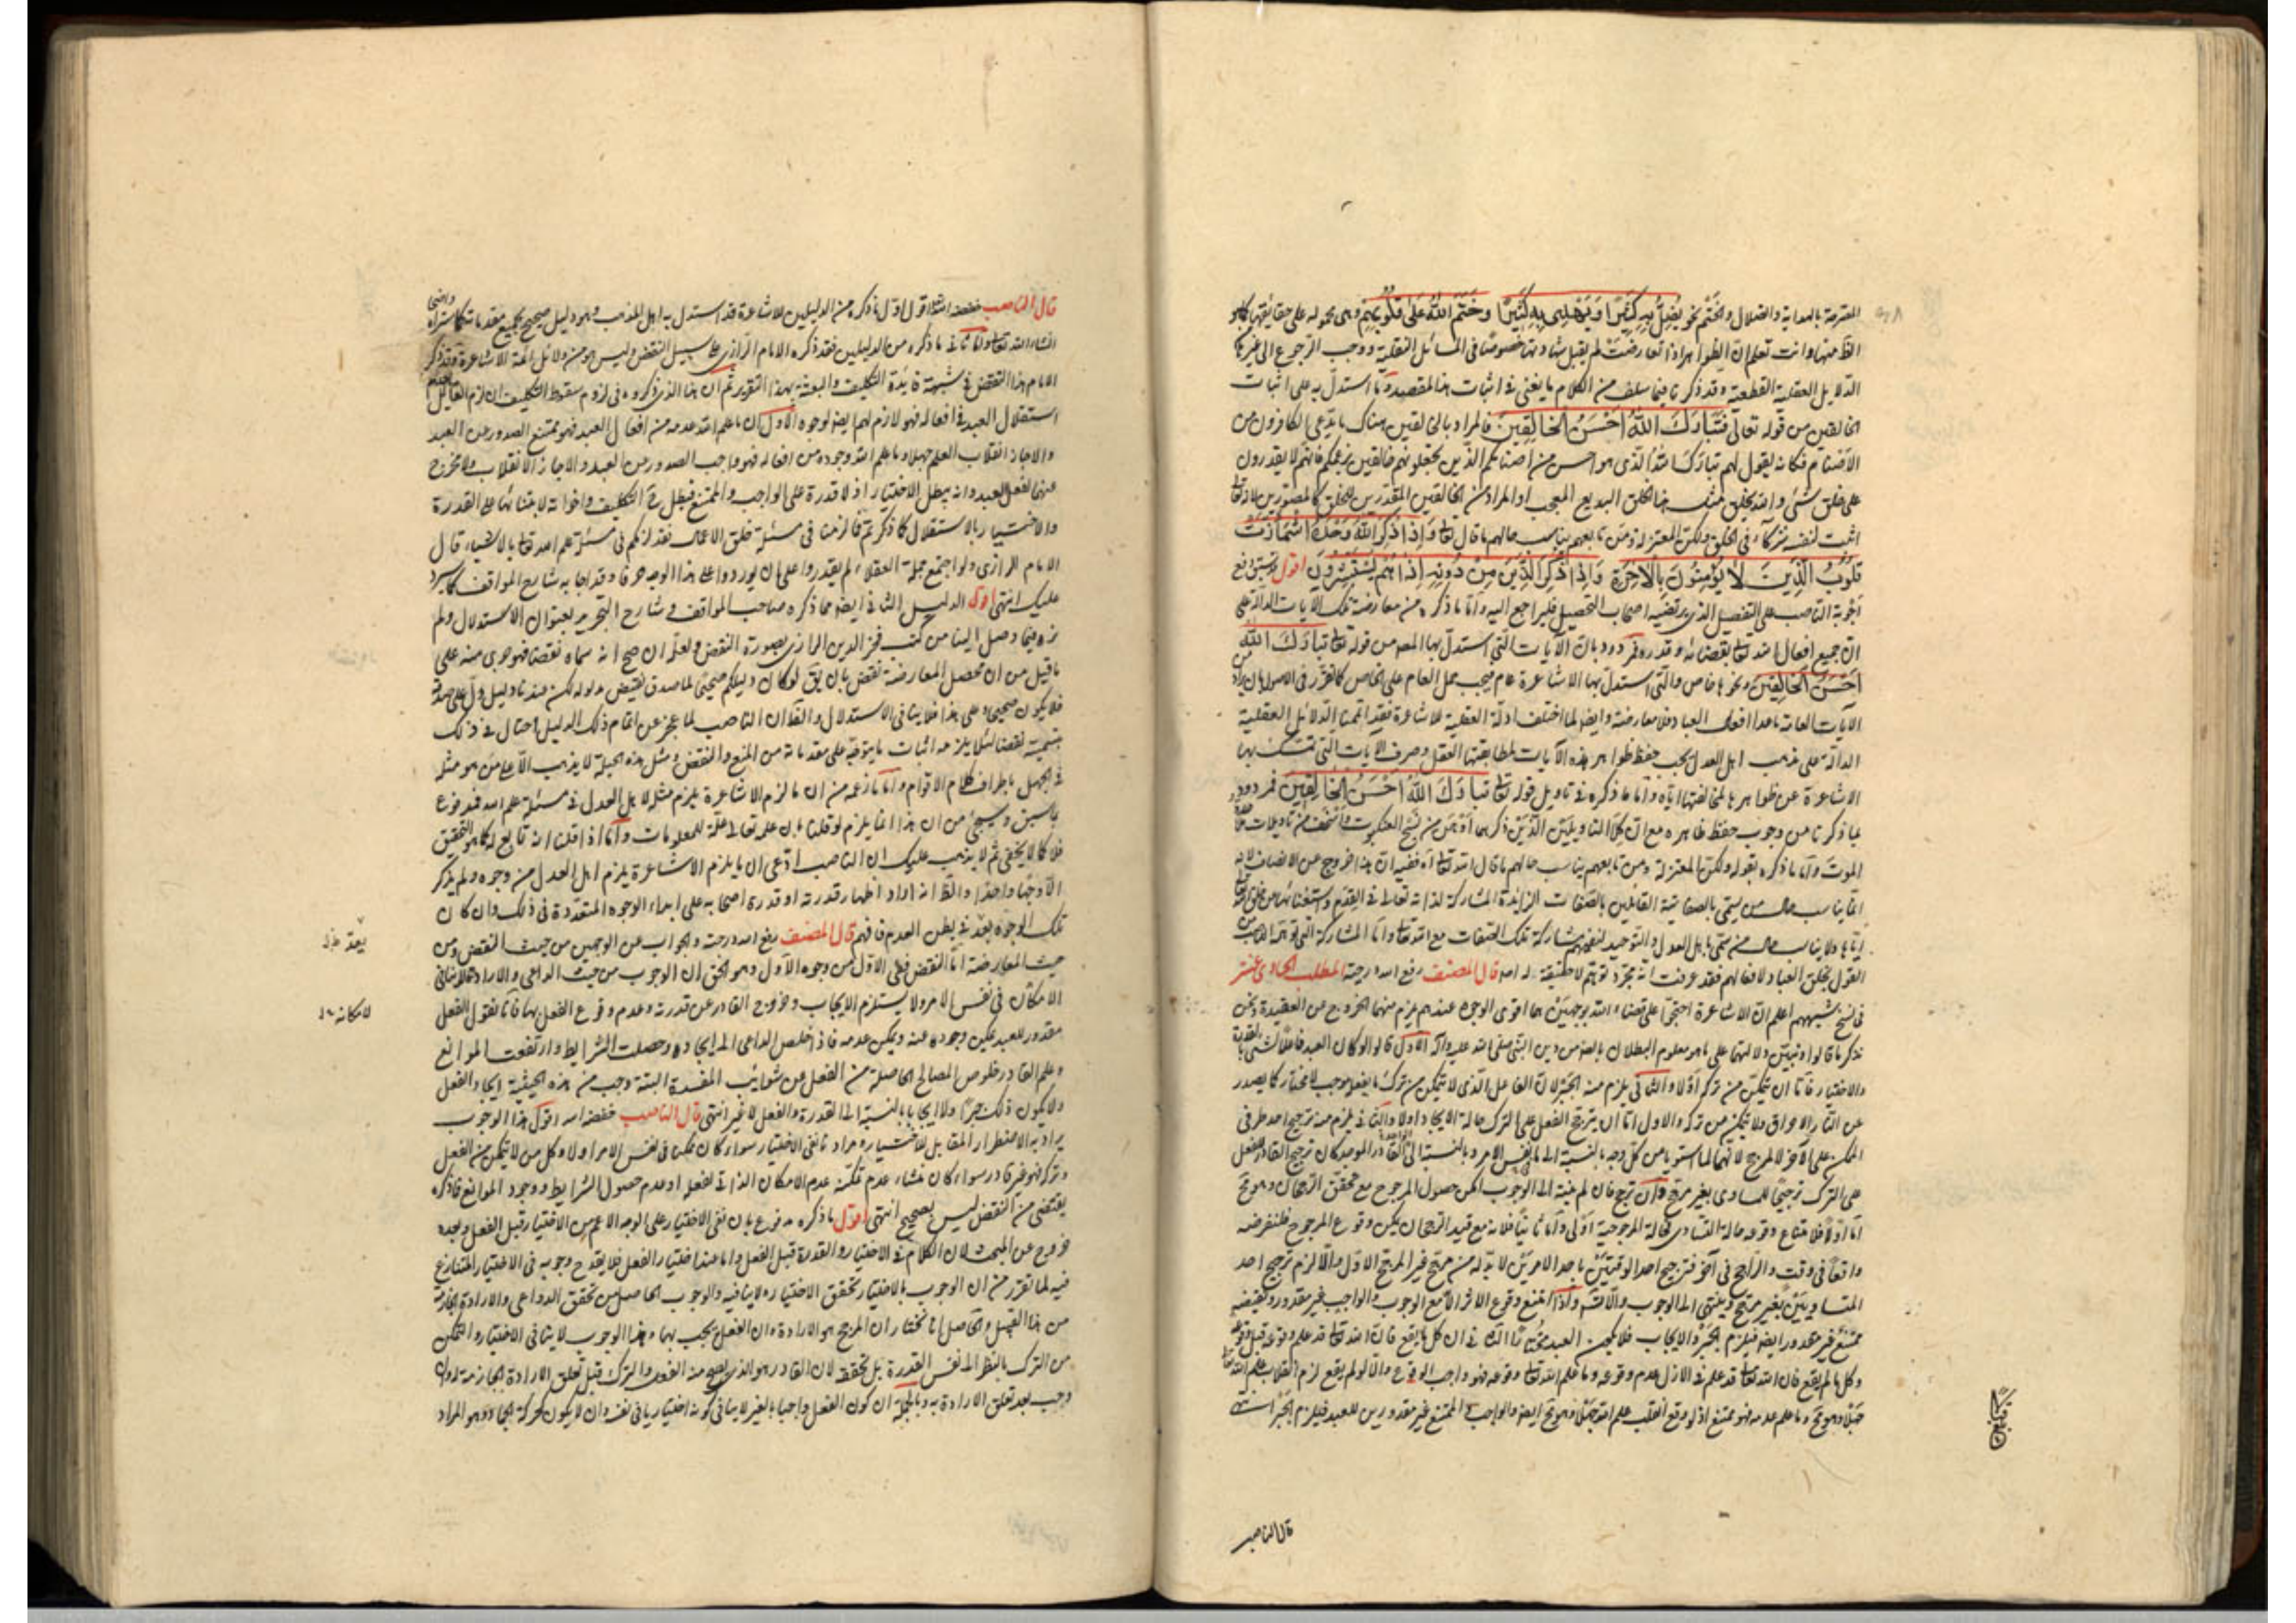 المصرحة بالهداية والضلال والختم نحو يُضِلُّ بِهِ كَثِيرًا وَيَهْدِي بِهِ كَثِيرًا وخَتَمَ اللهُ عَلَى قُلُوبِهِمْ وهى محمولة على حقايقها كما هو
الظ منها وانت تعلم ان الظواهر اذا تعارضت لم يقبل شهادتها خصوصًا فى المسائل النقلية ووجب الرجوع الى غيرها
الدلايل العقلية القطعية وقد ذكرنا فيما سلف من الكلام ما يغنى فى اثبات هذا المقصد وما استدل به على اثبات
الخالقين من قوله تعالى فَتَبَارَكَ اللهُ اَحْسَنُ الْخَالِقِينَ فالمراد بالخالقين هناك ما يدعى الكافرون من
الاصنام فكانه يقول لهم تبارك الله الذى هو احسن من اصنامكم الذين تجعلونهم خالقين بزعمكم فانهم لا يقدرون
على خلق شىء والله يخلق مثل هذا الخلق البديع المعجب او المراد من الخالقين المقدرين للخلق كالمصورين لا انه تعالى
اثبت لنفسه شركاء فى الخلق ولكن المعتزلة ومن تابعهم يناسب حالهم ما قال الله وَاِذَا ذُكِرَ اللهُ وَحْدَهُ اشْمَأَزَّتْ
قُلُوبُ الَّذِينَ لَا يُؤْمِنُونَ بِالْآخِرَةِ وَاِذَا ذُكِرَ الَّذِينَ مِنْ دُونِهِ اِذَا هُمْ يَسْتَبْشِرُونَ اقول قد سبق دفع
اجوبة الناصب على التفصيل الذى يرتضيه اصحاب التحصيل فليراجع اليه واما ما ذكره من معارضة تلك الآيات الدالة على
ان جميع افعال الله تعالى بقضائه وقدره فمردود بان الآيات التى استدل بها المصـ من قوله تعالى تَبَارَكَ اللهُ
اَحْسَنُ الْخَالِقِينَ ونحوها خاص والتى استدل بها الاشاعرة عام فيجب حمل العام على الخاص كما تقرر فى الاصول بان يراد من
الآيات العامة ما عدا افعال العباد فلا معارضة وايضًا لما اختلف ادلة العقلية للاشاعرة فقد اقمنا الدلائل العقلية
الدالة على مذهب اهل العدل يجب حفظ ظواهر هذه الآيات لمطابقتها العقل وصرف الآيات التى تمسك بها
الاشاعرة عن ظواهرها لمخالفتها اياه واما ما ذكره فى تاويل قوله تعالى تَبَارَكَ اللهُ اَحْسَنُ الْخَالِقِينَ فمردود
بما ذكرنا من وجوب حفظ ظاهره مع ان كلا التاويلين الذين ذكرهما اوهن من نسج العنكبوت واسخف من تاويلات
الموت واما ما ذكره بقوله ولكن المعتزلة ومن تابعهم يناسب حالهم ما قال الله تعالى آه ففيه ان هذا خروج عن الانصاف لانه
انما يناسب حال من يسمى بالصفاتية القائلين بالصفات الزايدة المشاركة لذاته تعالى فى القدم واستغنائها عن
اياها ولا يناسب حال من سمى باهل العدل والتوحيد لنفيهم مشاركة تلك الصفات مع الله تعالى واما المشاركة التى توهمها الناصب من
القول بخلق العباد لافعالهم فقد عرفت انه مجرد توهم لا حقيقة له قال المصنف رفع الله درجته المطلب الحادى عشر
فى نسخ شبههم اعلم ان الاشاعرة احتجوا على قضاء الله بوجهين هما اقوى الوجوه عندهم يلزم منهما الخروج عن العقيدة ونحن
نذكر ما قالوا ونبين دلالتهما على ما هو معلوم البطلان بالضـ من دين النبى صلى الله عليه وآله الاول قالوا لو كان العبد فاعلا لشىء بالقدرة
والاختيار فاما ان يتمكن من تركه اولا والثانى يلزم منه الجبر لان الفاعل الذى لا يتمكن من ترك ما يفعله موجب لا مختار كما يصدر
عن النار الاحراق ولا يتمكن من تركه والاول اما ان يترجح الفعل على الترك حالة الايجاد اولا والثانى يلزم منه ترجيح احد طرفى
الممكن على الآخر لا لمرجح لانهما لما استويا من كل وجه بالنسبة الى ما فى نفس الامر وبالنسبة الى القادر الموجد كان ترجيح القادر للفعل
على الترك ترجيحًا للمساوى بغير مرجح وان ترجح فان لم ينته الى الوجوب امكن حصول المرجوح مع تحقق الرجحان وهو مح
اما اولا فلامتناع وقوعه حالة التساوى فحالة المرجوحية اولى واما ثانيًا فلانه مع قيد الرجحان يمكن وقوع المرجوح فلنفرضه
واقعًا فى وقت والراجح فى آخر فترجيح احد الوقتين باحد الامرين لابد له من مرجح غير المرجح الاول والا لزم ترجيح احد
المتساويين بغير مرجح وينتهى الى الوجوب والا تسلسل واذا امتنع وقوع الاثر الا مع الوجوب والواجب غير مقدور ونقيضه
ممتنع غير مقدور ايضًا فيلزم الجبر والايجاب فلا يكون العبد مختارًا الثانى ان كل ما يقع فان الله تعالى قد علم وقوعه قبل وقوعه
وكل ما لم يقع فان الله تعالى قد علم فى الازل عدم وقوعه وما علم الله تعالى وقوعه فهو واجب الوقوع والا لو لم يقع لزم انقلاب علم الله تعالى
جهلا وهو مح وما علم عدمه فهو ممتنع اذ لو وقع انقلب علم الله جهلا وهو مح ايضًا والواجب والممتنع غير مقدورين للعبد فيلزم الجبر انتهى
قال الناصب
قال الناصب خفضه الله اقول اول ما ذكره من الدليلين للاشاعرة قد استدل به اهل المذهب وهو دليل صحيح بجميع مقدماته كما ستراه واضحا
انشاء الله تعالى واما ثانى ما ذكره من الدليلين فقد ذكره الامام الرازى على سبيل النقض وليس هو من دلائل ائمة الاشاعرة وقد ذكر
الامام هذا النقض فى شبهة فايدة التكليف والبعثة بهذا التقرير ثم ان هذا الذى ذكروه فى لزوم سقوط التكليف ان لزم القائل بعدم
استقلال العبد فى افعاله فهو لازم لهم ايضًا لوجوه الاول ان ما علم الله عدمه من افعال العبد فهو ممتنع الصدور من العبد
والا جاز انقلاب العلم جهلا وما علم الله وجوده من افعاله فهو واجب الصدور من العبد والا جاز الانقلاب ولا مخرج
عنهما لفعل العبد وانه يبطل الاختيار اذ لا قدرة على الواجب والممتنع فبطل حينئذ التكليف واخواته لابتنائها على القدرة
والاختيار بالاستقلال كما ذكرتم فما لزمنا فى مسئلة خلق الاعمال فقد لزمكم فى مسئلة علم الله تعالى بالاشياء قال
الامام الرازى ولو اجتمع جملة العقلاء لم يقدروا على ان يوردوا على هذا الوجه حرفًا وقد اجاب شارح المواقف كما سيرد
عليك انتهى اقول الدليل الثانى ايضًا مما ذكره صاحب المواقف وشارح التجريد بعنوان الاستدلال ولم
نره فيما وصل الينا من كتب فخر الدين الرازى بصورة النقض ولعله ان صح انه سماه نقضًا فهو جرى منه على
ما قيل من ان محصل المعارضة نقض بان يق لو كان دليلكم صحيحًا لما صدق نقيض مدلوله لكن عندنا دليل دل على صدقه
فلا يكون صحيحًا وعلى هذا فلا ينافى الاستدلال والظ ان الناصب لما عجز عن اتمام ذلك الدليل احتال فى ذلك
بتسميته نقضًا لئلا يلزمه اثبات ما يتوجه على مقدماته من المنع والنقض ومثل هذه الحيلة لا يذهب الا على من هو مثله
فى الجهل باطراف كلام الاقوام واما ما زعمه من ان ما لزم الاشاعرة يلزم مثله لاهل العدل فى مسئلة علم الله فمدفوع
بما سبق وسيجىء من ان هذا انما يلزم لو قلنا بان علمه تعالى علة للمعلومات واما اذا قلنا انه تابع له كما هو التحقيق
فلا كما لا يخفى ثم لا يذهب عليك ان الناصب ادعى ان ما يلزم الاشاعرة يلزم اهل العدل من وجوه ولم يذكر
الا وجهًا واحدًا والظ انه اراد اظهار قدرته او قدرة اصحابه على ابداء الوجوه المتعددة فى ذلك وان كان
تلك الوجوه بعد فى بطن العدم فافهم قال المصنف رفع الله درجته والجواب عن الوجهين من حيث النقض ومن
حيث المعارضة اما النقض ففى الاول من وجوه الاول وهو الحق ان الوجوب من حيث الداعى والارادة لا ينافى
الامكان فى نفس الامر ولا يستلزم الايجاب وخروج القادر عن قدرته وعدم وقوع الفعل بها فانا نقول الفعل
مقدور للعبد يمكن وجوده عنه ويمكن عدمه فاذا خلص الداعى الى ايجاده وحصلت الشرايط وارتفعت الموانع
وعلم القادر خلوص المصالح الحاصلة من الفعل عن شوايب المفسدة البتة وجب من هذه الحيثية ايجاد الفعل
ولا يكون ذلك جبرًا ولا ايجابًا بالنسبة الى القدرة والفعل لا غير انتهى قال الناصب خفضه الله اقول هذا الوجوب
يراد به الاضطرار المقابل للاختيار ومرادنا نفى الاختيار سواء كان ممكنا فى نفس الامر او لا وكل من لا يتمكن من الفعل
وتركه فهو غير قادر سواء كان منشاء عدم تمكنه عدم الامكان الذاتى لفعله او عدم حصول الشرايط ووجود الموانع فما ذكره
يقتضى من النقض ليس بصحيح انتهى اقول ما ذكره مدفوع بان نفى الاختيار على الوجه الاعم من الاختيار قبل الفعل وبعده
خروج عن المبحث لان الكلام فى الاختيار والقدرة قبل الفعل واما عند اختيار الفعل فلا يقدح وجوبه فى الاختيار المتنازع
فيه لما تقرر من ان الوجوب بالاختيار تحقق الاختيار ولا ينافيه والوجوب الحاصل من تحقق الدواعى والارادة الجازمة
من هذا القبيل والحاصل انا نختار ان المرجح هو الارادة وان الفعل يجب بها وهذا الوجوب لا ينافى الاختيار والتمكن
من الترك بالنظر الى نفس القدرة بل تحققه لان القادر هو الذى يصح منه الفعل والترك قبل تعلق الارادة الجازمة له وان
وجب بعد تعلق الارادة به وبالجملة ان كون الفعل واجبا بالغير لا ينافى كونه اختياريا فى نفسه وان لا يكون كحركة الجماد وهو المراد
لامكانه